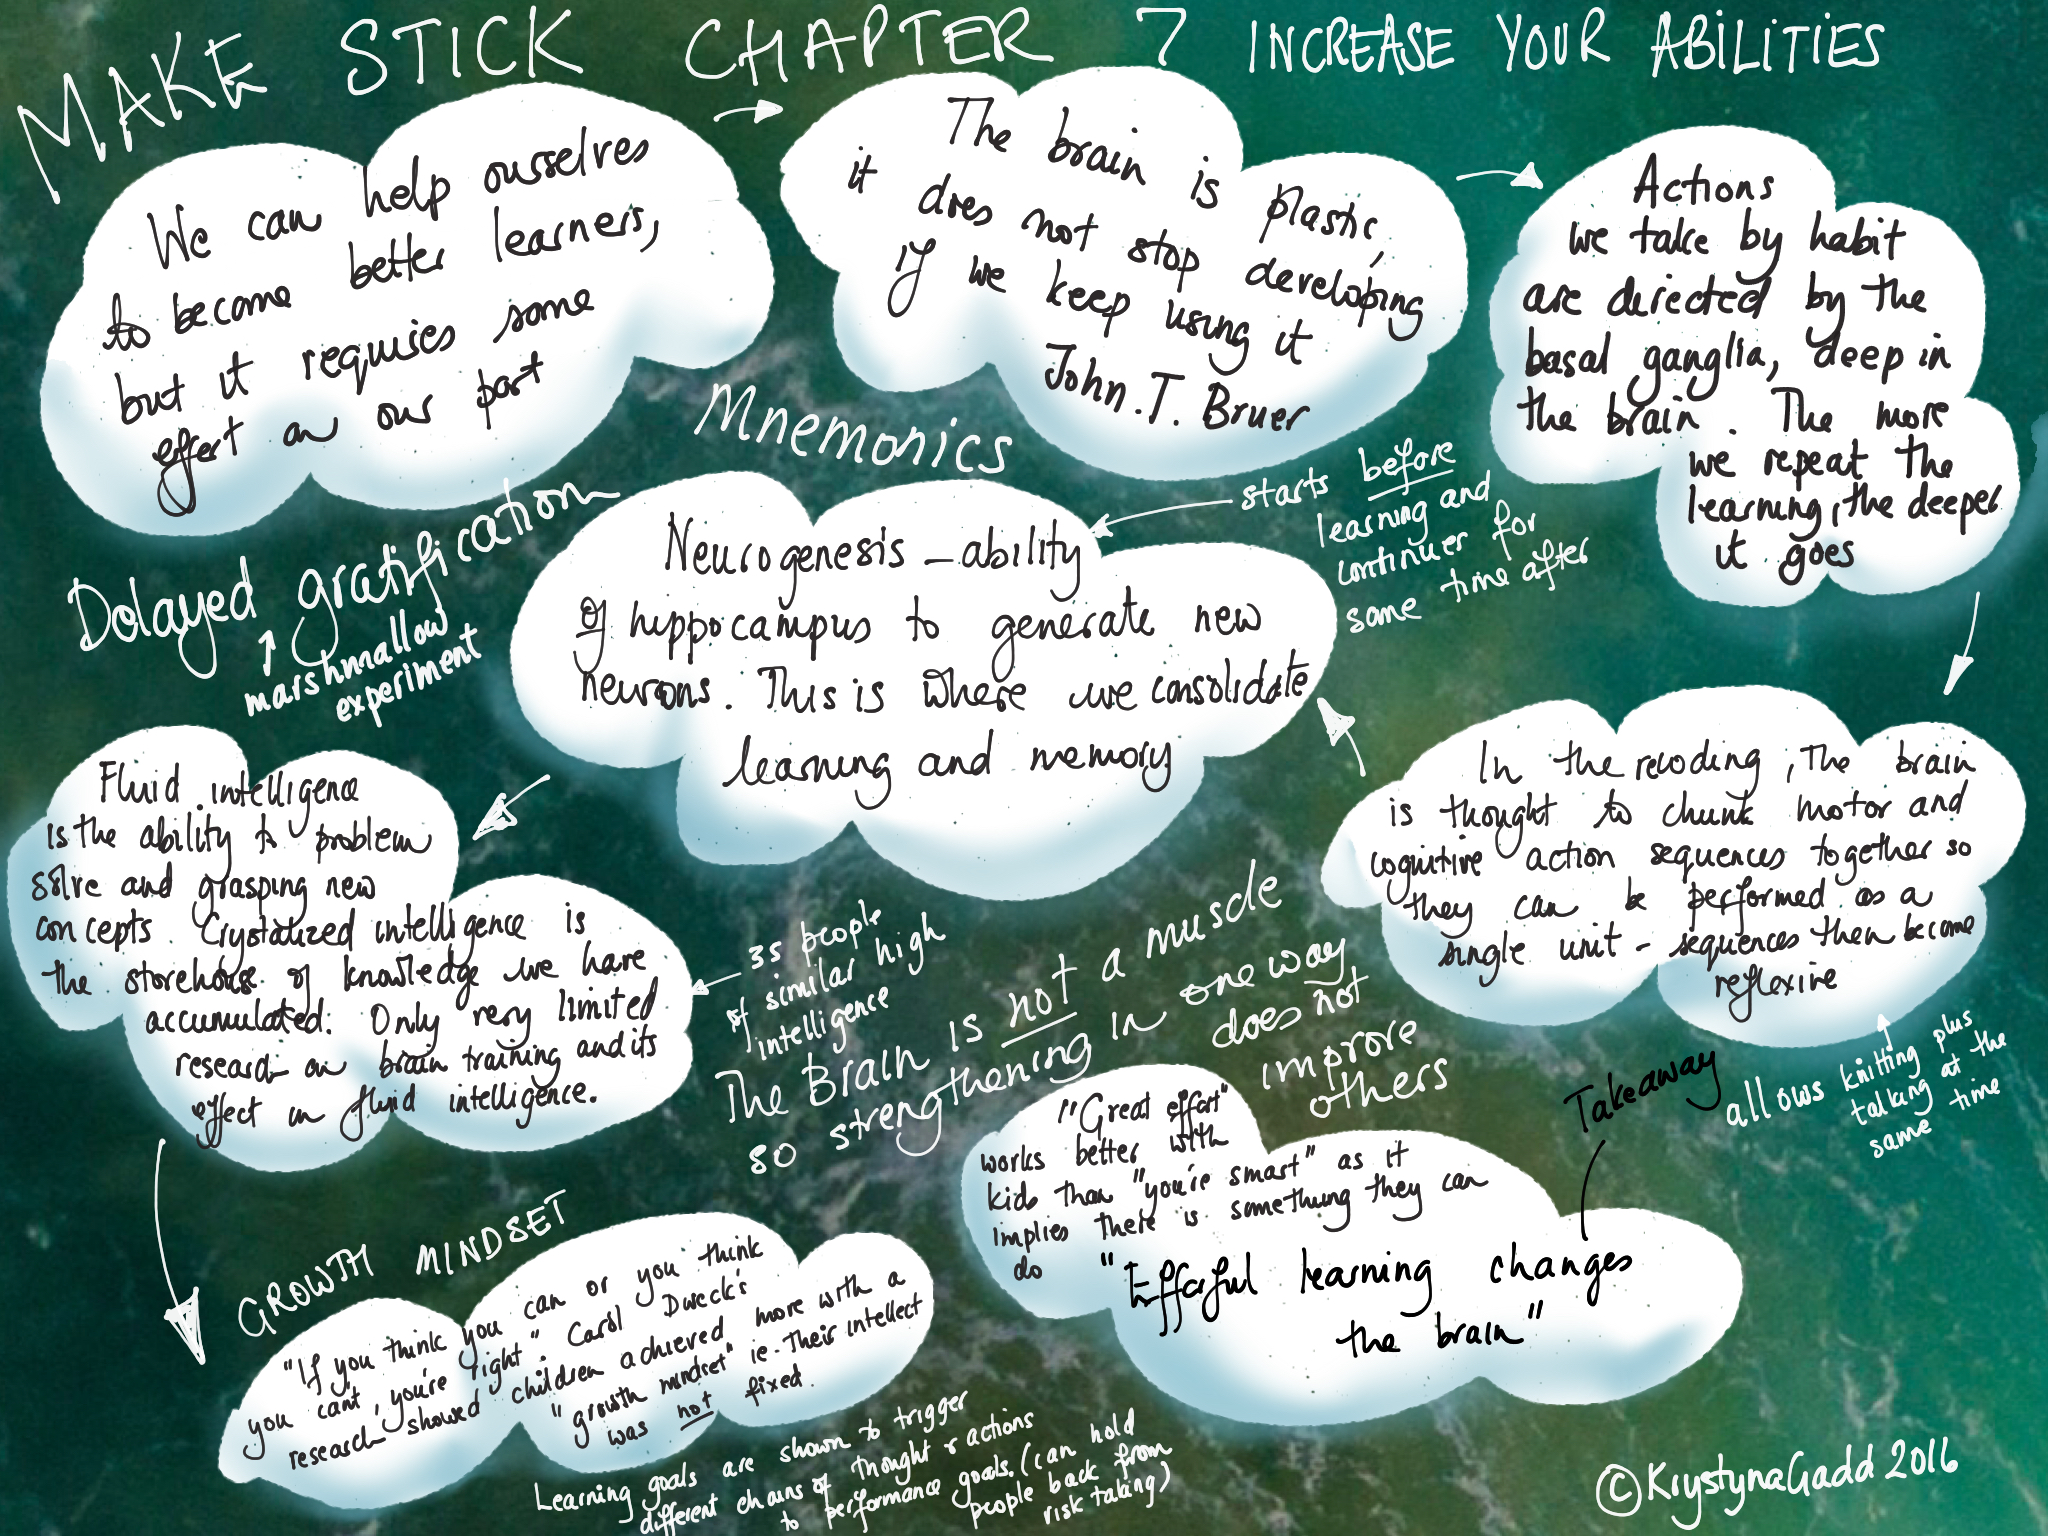 MAKE STICK CHAPTER 7 INCREASE YOUR ABILITIES
We can help ourselves
to become better learners,
but it requires some
effort on our part
The brain is plastic,
it does not stop developing
if we keep using it
John. T. Bruer
Actions
we take by habit
are directed by the
basal ganglia, deep in
the brain. The more
we repeat the
learning, the deeper
it goes
Mnemonics
Delayed gratification
marshmallow
experiment
starts before
learning and
continues for
some time after
Neurogenesis - ability
of hippocampus to generate new
neurons. This is where we consolidate
learning and memory
In the recoding, The brain
is thought to chunk motor and
cognitive action sequences together so
they can be performed as a
single unit - sequences then become
reflexive
allows knitting plus
talking at the
same time
Fluid intelligence
is the ability to problem
solve and grasping new
concepts. Crystalized intelligence is
the storehouse of knowledge we have
accumulated. Only very limited
research on brain training and its
effect on fluid intelligence.
35 people
of similar high
intelligence
The Brain is not a muscle
so strengthening in one way
does not
improve
others
"Great effort"
works better with
kids than "you're smart" as it
implies there is something they can
do
Takeaway
"Effortful learning changes
the brain"
GROWTH MINDSET
"If you think you can or you think
you can't, you're right". Carol Dweck's
research showed children achieved more with a
"growth mindset" ie. Their intellect
was not fixed.
Learning goals are shown to trigger
different chains of thought & actions
to performance goals. (can hold
people back from
risk taking)
©KrystynaGadd 2016